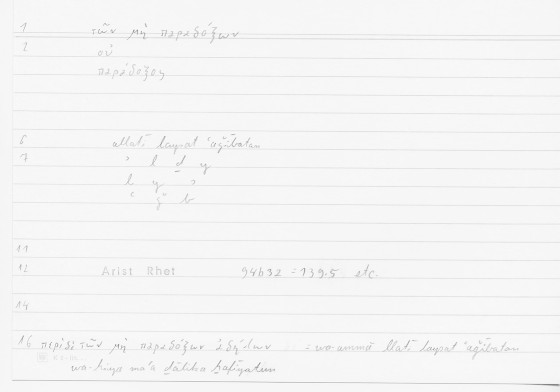 1 τῶν μὴ παραδόξων
2 οὐ
παράδοξον
6 allatī laysat ʿaǧībatan
7 ʾ l ḏ y
l y ʾ
ʿ ǧ b
11
12 Arist Rhet 94b32 = 139.5 etc.
14
16 περὶ δὲ τῶν μὴ παραδόξων ἀδήλων = wa-ammā llatī laysat ʿaǧībatan
wa-hiya maʿa ḏālika ḫafīyatun